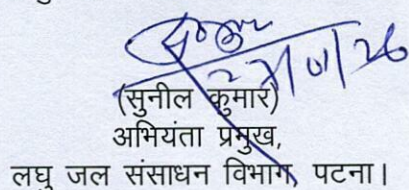 (सुनील कुमार)
अभियंता प्रमुख,
लघु जल संसाधन विभाग, पटना।